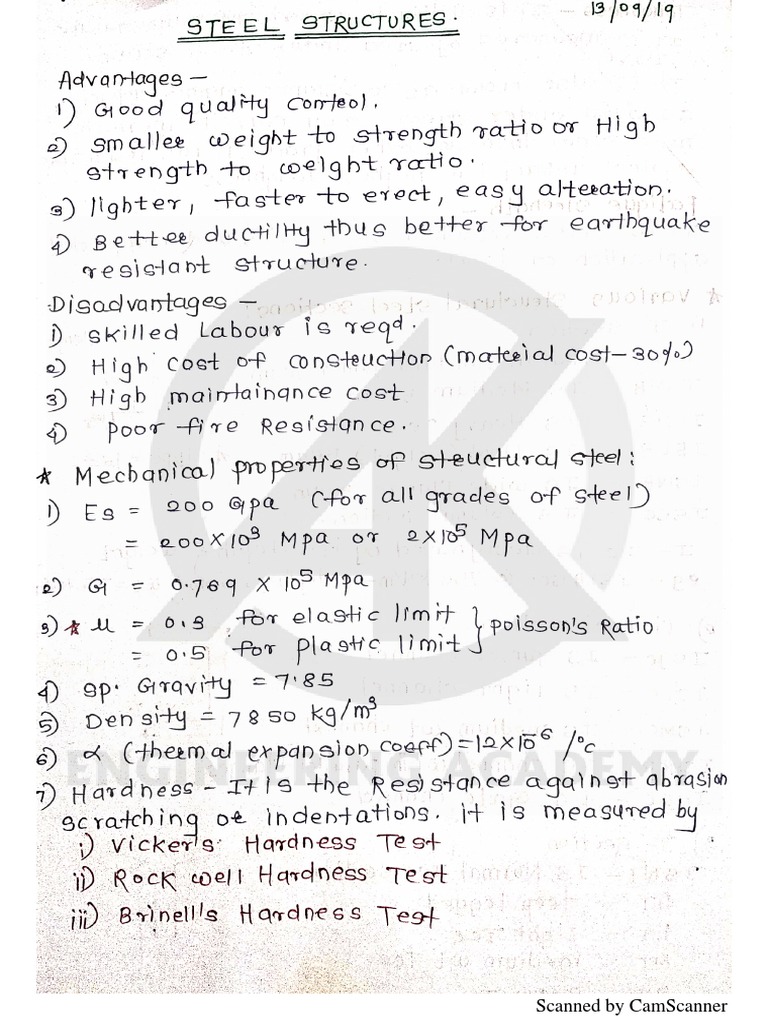 13/09/19
STEEL STRUCTURES.
Advantages –
1) Good quality control.
2) smaller weight to strength ratio or High
strength to weight ratio.
3) lighter, faster to erect, easy alteration.
4) Better ductility thus better for earthquake
resistant structure.
Disadvantages –
1) skilled Labour is reqd.
2) High cost of construction (material cost–30%)
3) High maintainance cost
4) poor fire Resistance.
* Mechanical properties of structural steel:
1) Es = 200 Gpa (for all grades of steel)
= 200×10³ Mpa or 2×10⁵ Mpa
2) G = 0.769 × 10⁵ Mpa
3) * μ = 0.3 for elastic limit } poisson's Ratio
= 0.5 for plastic limit
4) sp. Gravity = 7.85
5) Density = 7850 kg/m³
6) α (thermal expansion coeff) = 12×10⁻⁶ /°c
7) Hardness – It is the Resistance against abrasion
scratching or indentations. it is measured by
i) Vicker's Hardness Test
ii) Rock well Hardness Test
iii) Brinell's Hardness Test
ENGINEERING ACADEMY
Scanned by CamScanner